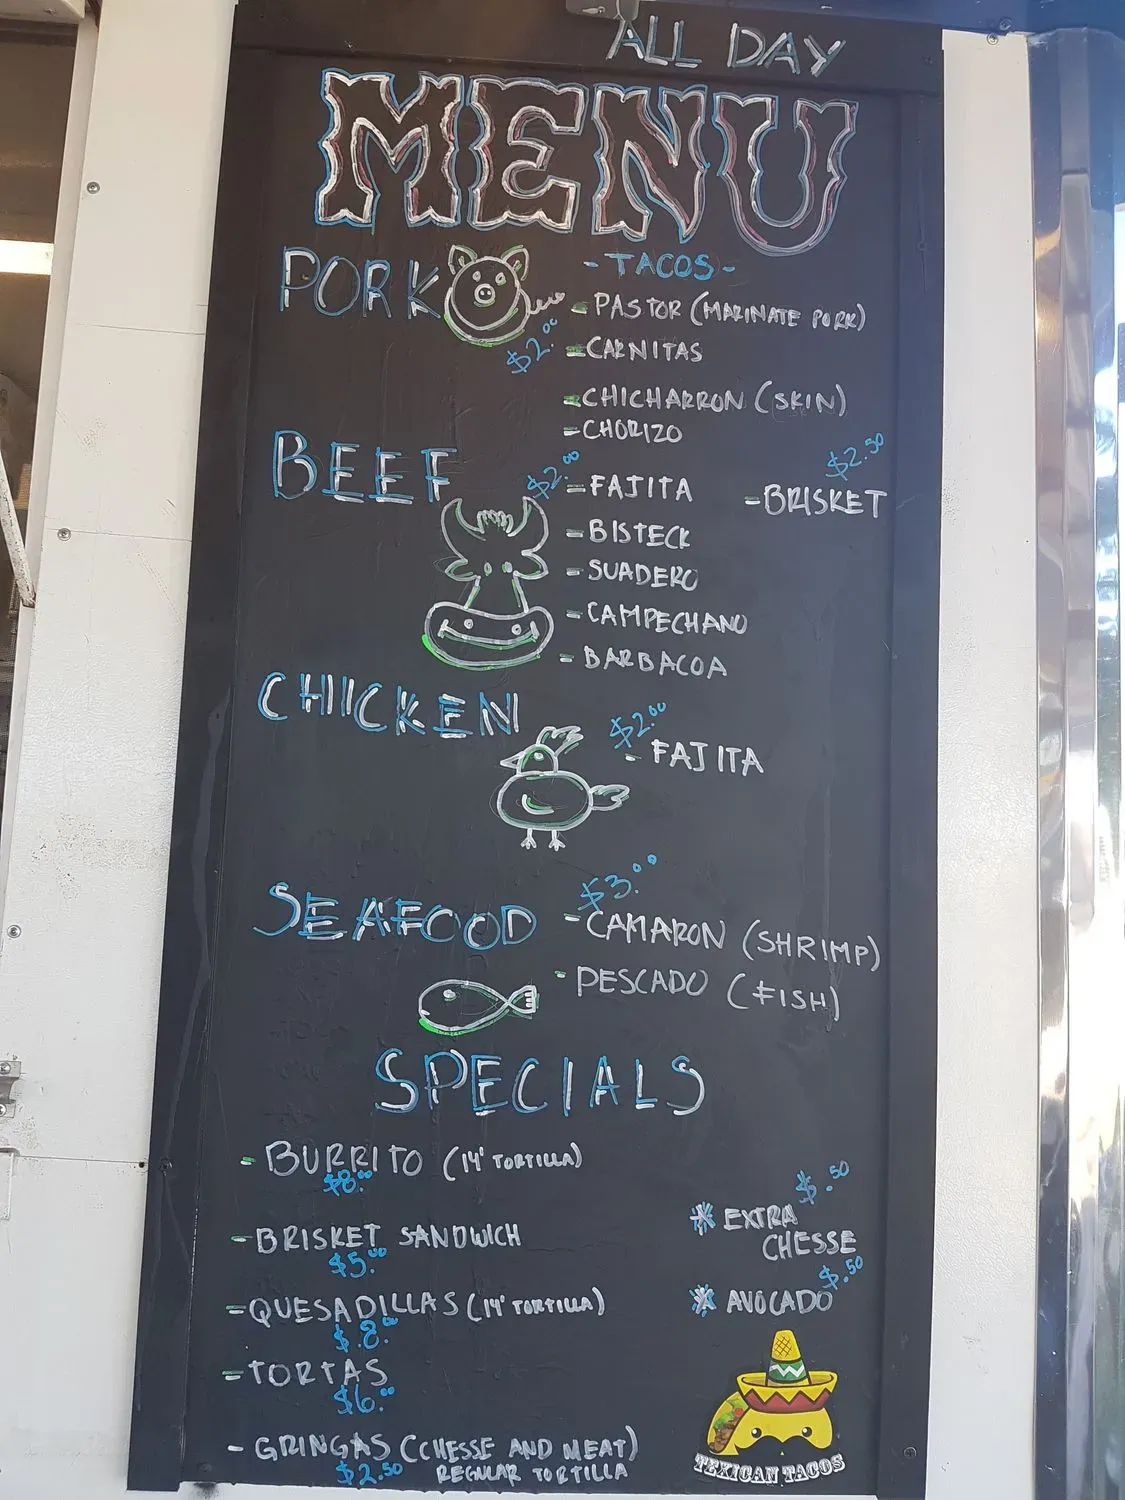 ALL DAY
MENU
PORK
- TACOS -
$2.00
- PASTOR (MARINATE PORK)
- CARNITAS
- CHICHARRON (SKIN)
- CHORIZO
BEEF
$2.00
- FAJITA
$2.50
- BRISKET
- BISTECK
- SUADERO
- CAMPECHANO
- BARBACOA
CHICKEN
$2.00
- FAJITA
SEAFOOD
$3.00
- CAMARON (SHRIMP)
- PESCADO (FISH)
SPECIALS
- BURRITO (14" TORTILLA)
$8.00
- BRISKET SANDWICH
$5.00
- QUESADILLAS (14" TORTILLA)
$.8.00
- TORTAS
$6.00
- GRINGAS (CHESSE AND MEAT)
$2.50 REGULAR TORTILLA
$.50
* EXTRA
CHESSE
$.50
* AVOCADO
TEXICAN TACOS